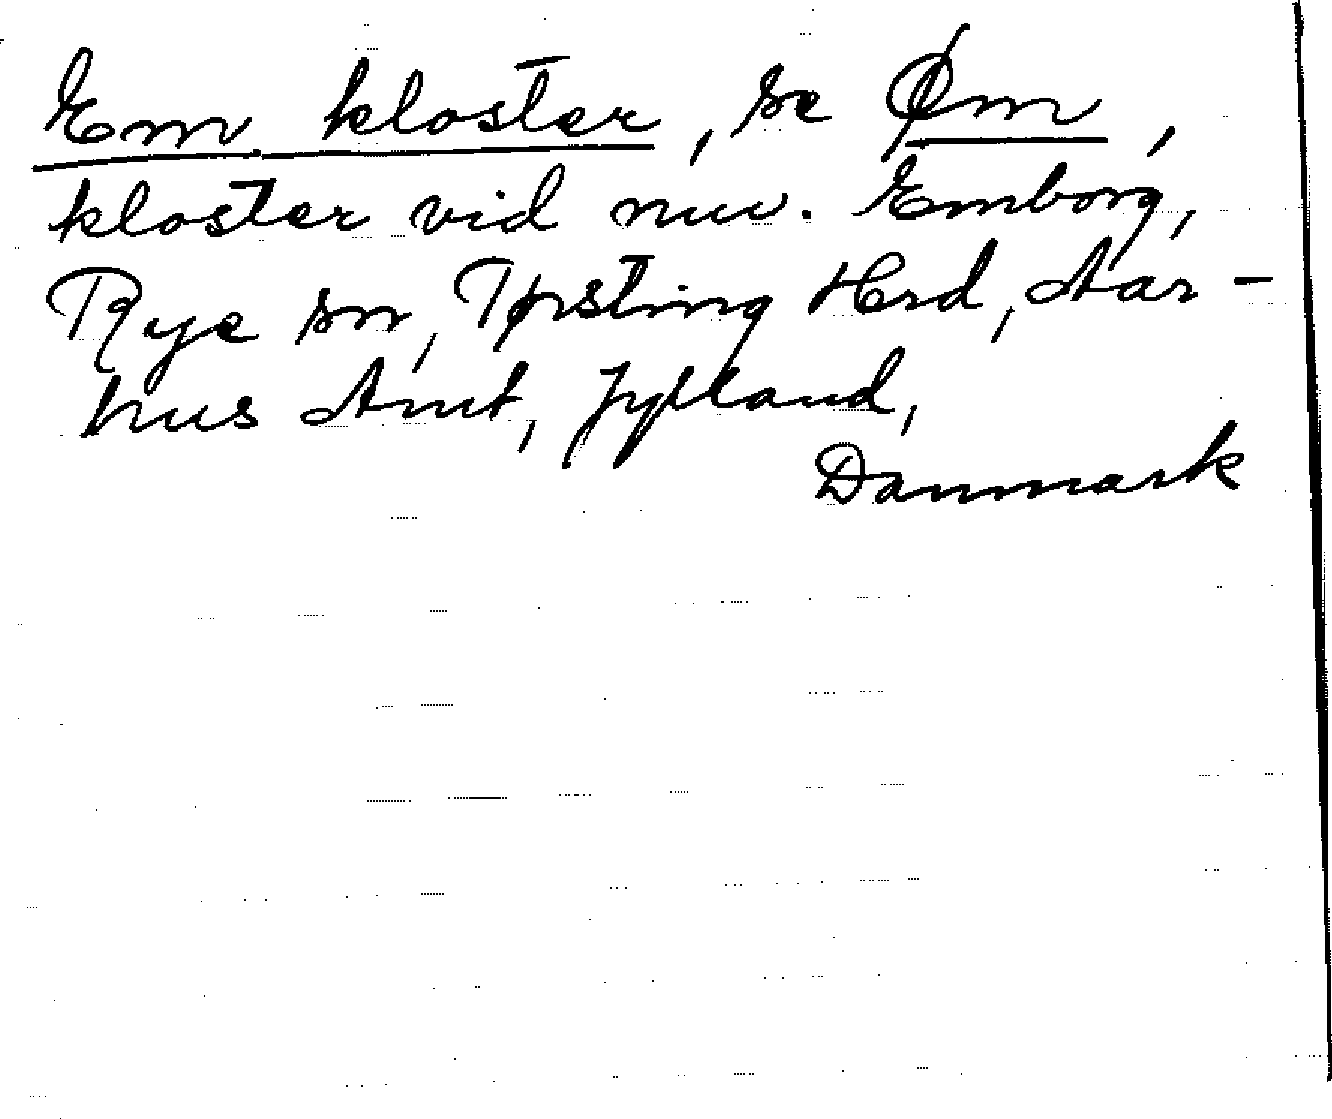 Em kloster, se Øm,
kloster vid nuv. Emborg,
Rye sn, Tørsting Hrd, Aar-
hus Amt, Jylland,
Danmark